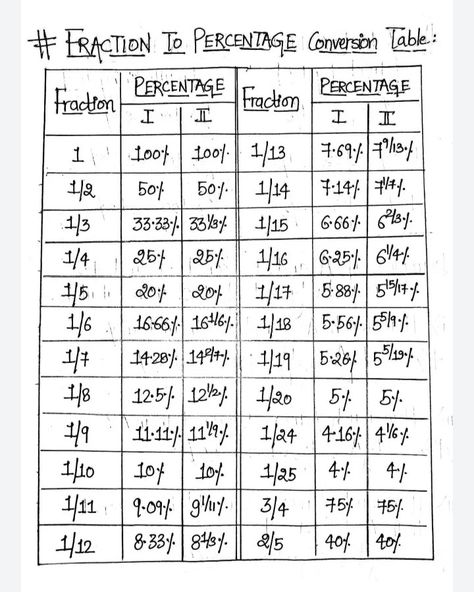 # FRACTION TO PERCENTAGE Conversion Table:
Fraction PERCENTAGE Fraction PERCENTAGE
I II I II
1 100% 100% 1/13 7.69% 7 9/13%
1/2 50% 50% 1/14 7.14% 7 1/7%
1/3 33.33% 33 1/3% 1/15 6.66% 6 2/3%
1/4 25% 25% 1/16 6.25% 6 1/4%
1/5 20% 20% 1/17 5.88% 5 15/17%
1/6 16.66% 1/18 5.56% 5 5/9%
1/7 14.28% 14 2/7% 1/19 5.26% 5 5/19%
1/8 12.5% 12 1/2% 1/20 5% 5%
1/9 11.11% 11 1/9% 1/24 4.16% 4 1/6%
1/10 10% 10% 1/25 4% 4%
1/11 9.09% 9 1/11% 3/4 75% 75%
1/12 8.33% 8 1/3% 2/5 40% 40%